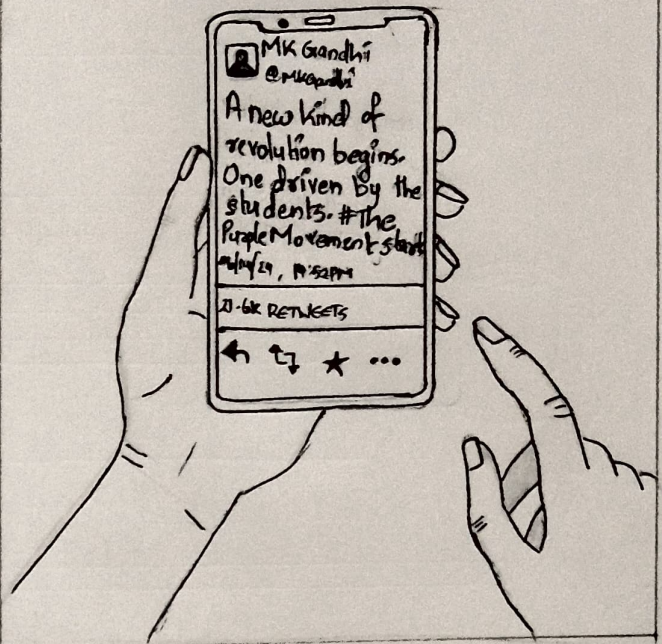 MK Gandhi
@MKGandhi
A new kind of
revolution begins.
One driven by the
students. #The
PurpleMovement starts
PM
RETWEETS